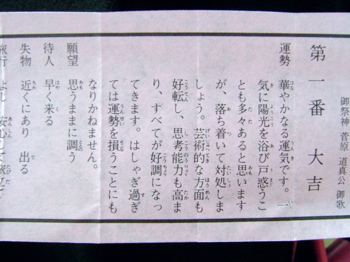 御祭神 菅原 道真公 御歌
第一番 大吉
運勢 華やかなる運気です。一
気に陽光を浴び戸惑うこ
とも多々あると思います
が、落ち着いて対処しま
しょう。芸術的な方面も
好転し、思考能力も高ま
り、すべてが好調になっ
てきます。はしゃぎ過ぎ
ては運勢を損うことにも
なりかねません。
願望 思うままに調う
待人 早く来る
失物 近くにあり 出る